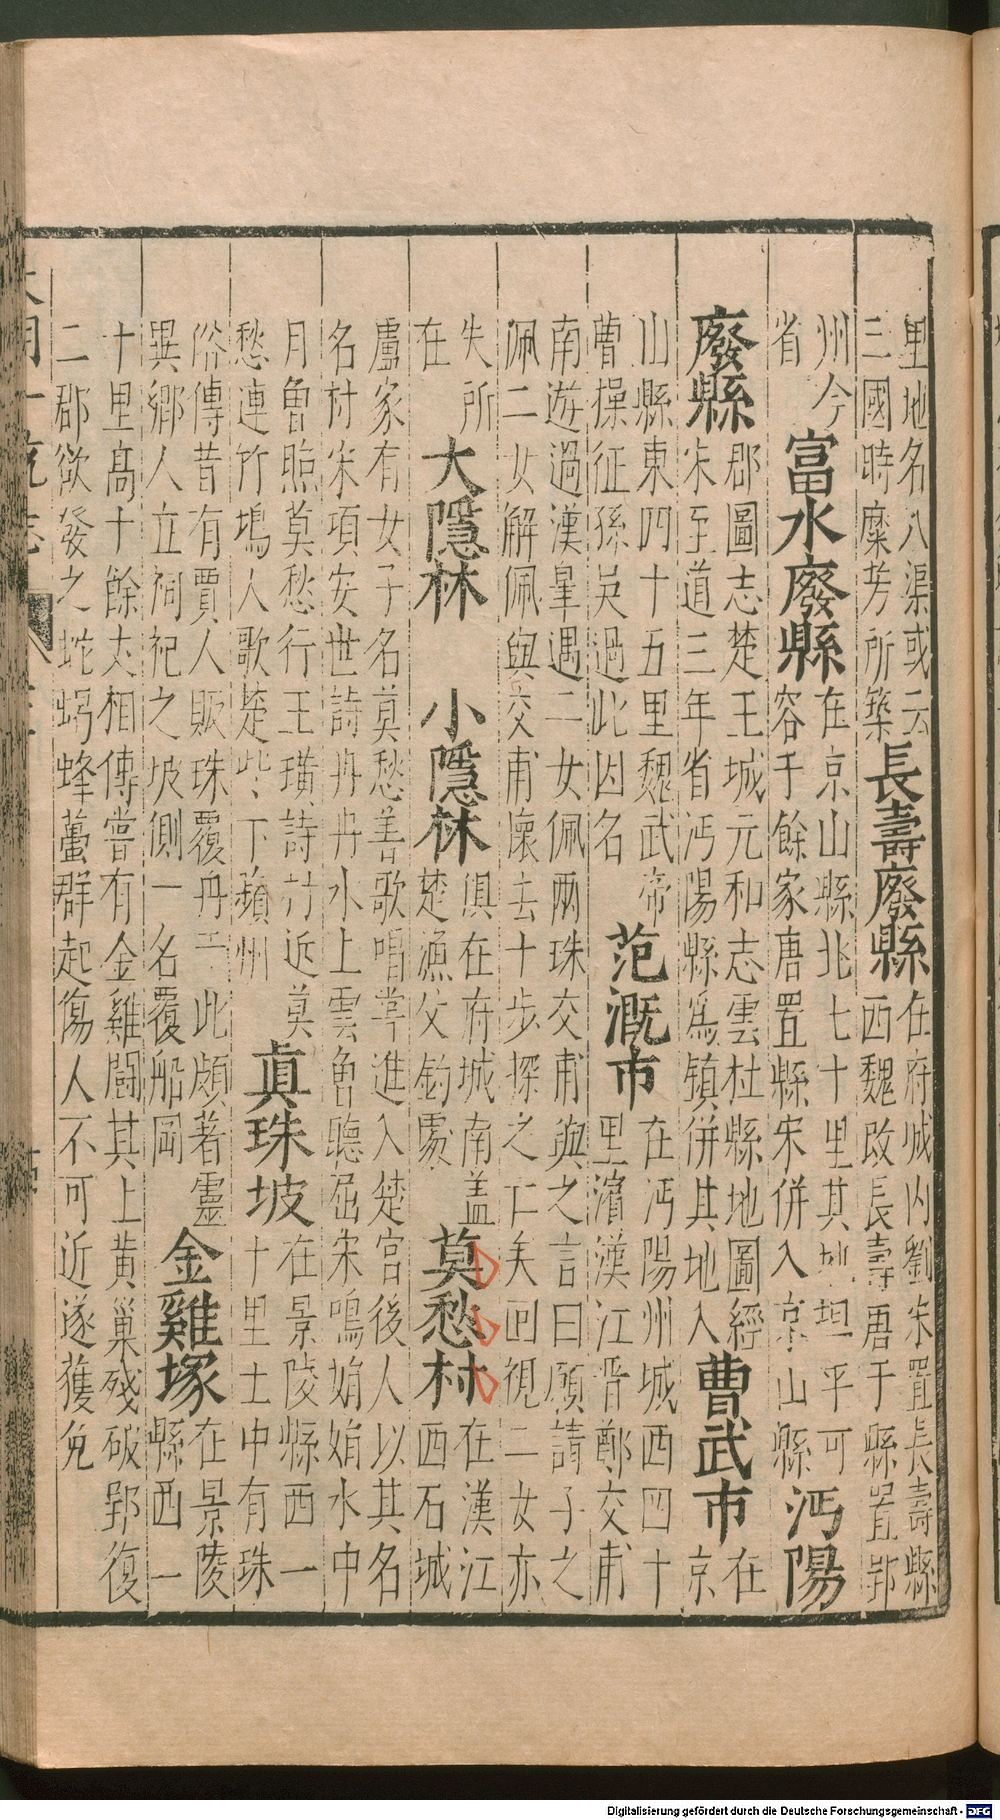 里地名八渠或云三國時糜芳所築長壽廢縣在府城內劉宋置長壽縣西魏改長壽唐于縣置郢
州今省富水廢縣在京山縣北七十里其地坦平可容千餘家唐置縣宋併入京山縣沔陽
廢縣郡圖志楚王城元和志雲杜縣地圖經宋至道三年省沔陽縣為鎮併其地入曹武市在京
山縣東四十五里魏武帝曹操征孫吳過此因名范溉市在沔陽州城西四十里濱漢江晉鄭交甫
南遊過漢皋遇二女佩兩珠交甫與之言曰願請子之佩二女解佩與交甫懷去十步探之亡矣回視二女亦
失所在大隱林 小隱林俱在府城南蓋楚漁父釣處莫愁村在漢江西石城
盧家有女子名莫愁善歌唱嘗進入楚宮後人以其名名村宋項安世詩冉冉水上雲魯聽屈宋鳴娟娟水中
月魯照莫愁行王璜詩村近莫愁連竹塢人歌楚些下蘋州眞珠坡在景陵縣西一十里土中有珠
俗傳昔有賈人販珠覆舟于此頗著靈異鄉人立祠祀之坡側一名覆船岡金雞塚在景陵縣西一
十里高十餘丈相傳嘗有金雞鬭其上黃巢殘破郢復二郡欲發之蛇蚓蜂蠆群起傷人不可近遂獲免
Digitalisierung gefördert durch die Deutsche Forschungsgemeinschaft - DFG